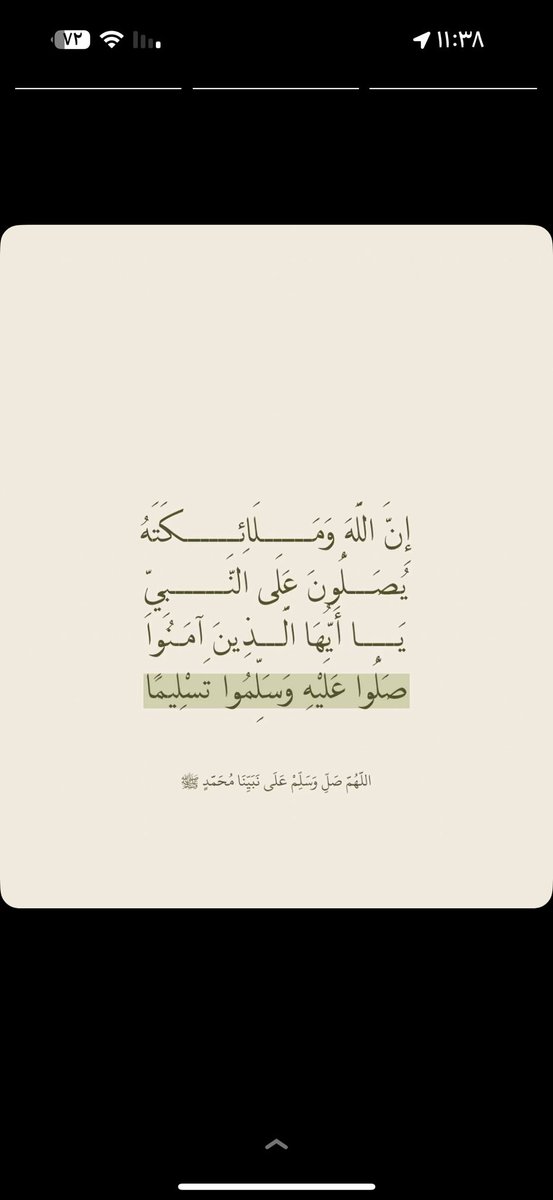 ١١:٣٨
٧٢
إِنَّ اللَّهَ وَمَـــــلَائِـــــكَتَهُ
يُصَـــلُّونَ عَلَى النَّـــــبِيِّ
يَـــا أَيُّهَا الَّـــذِينَ آمَـنُوا
صَلُّوا عَلَيْهِ وَسَلِّمُوا تَسْلِيمًا
اللَّهُمَّ صَلِّ وَسَلِّمْ عَلَى نَبَيِّنَا مُحَمَّدٍ ﷺ